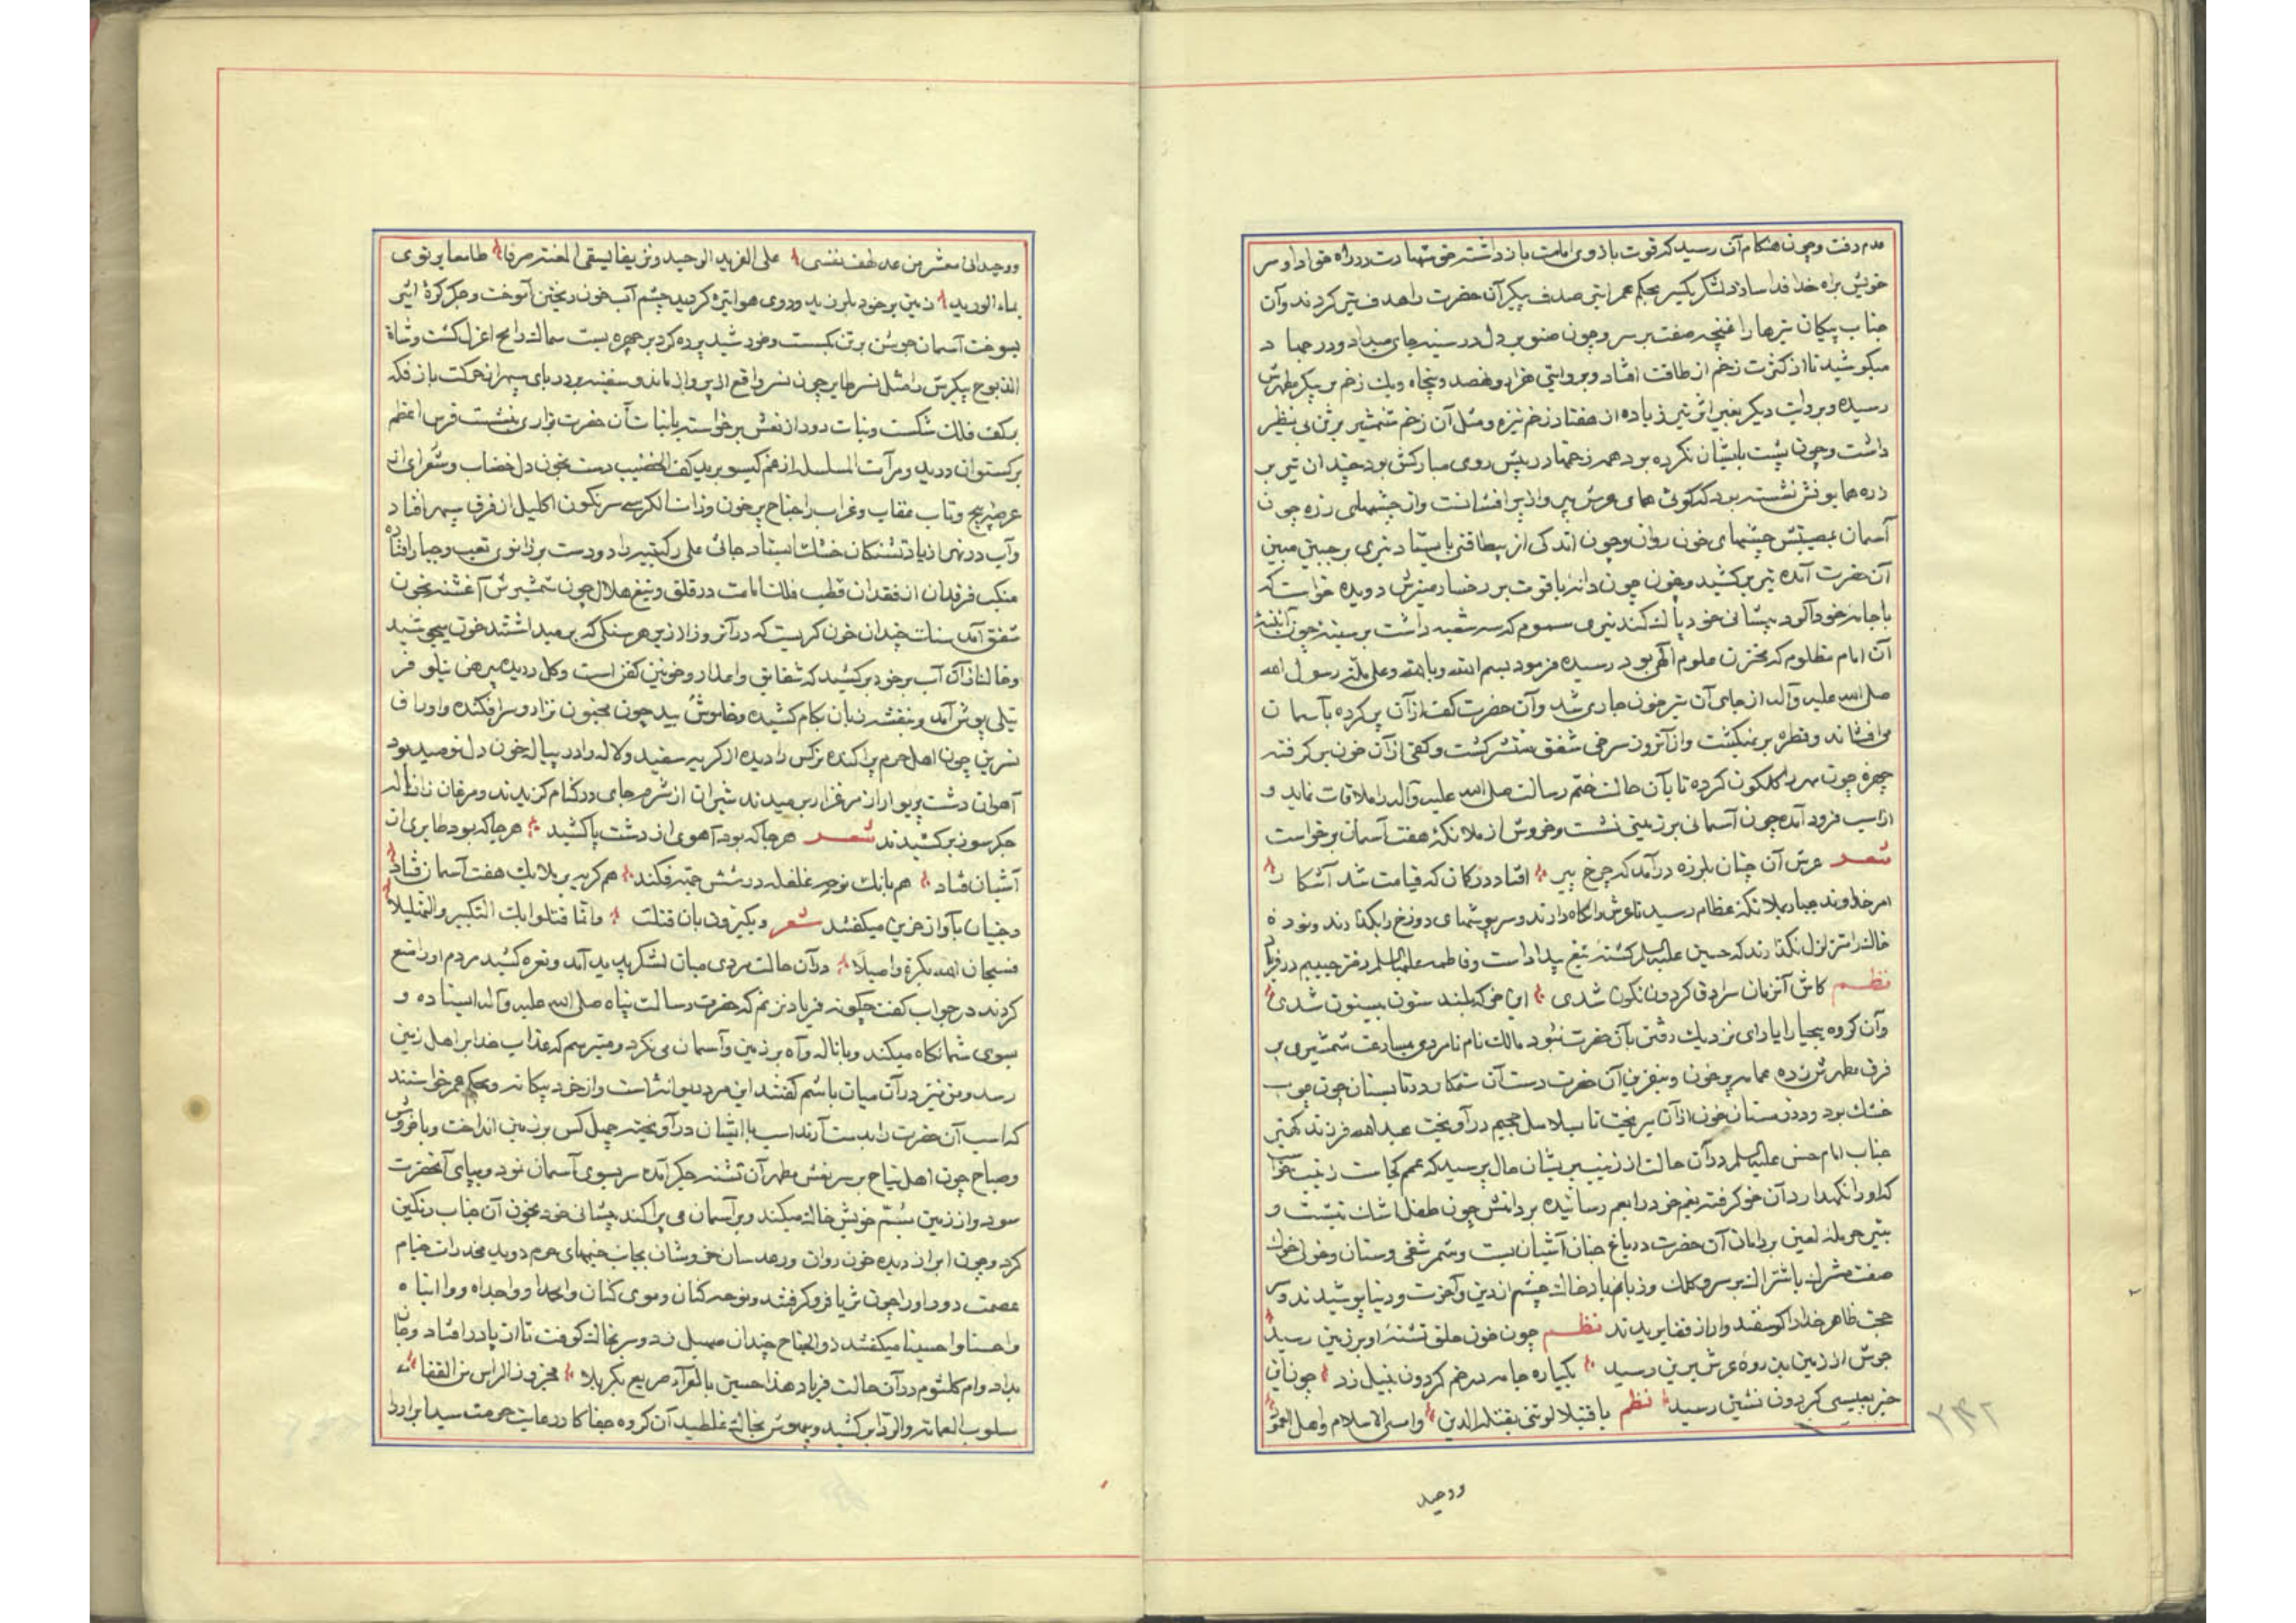 عدم رفت وچون هنکام آن رسید که قوت بازوی امامت باز داشته حق شهادت در راه خدا داد و سر
خویش براه خدا فدا سازد لشکر یکسر بحکم عمر ابتی صدف پیکر آن حضرت را هدف تیر کردند وآن
جناب پیکان تیرها را غنچه صفت بر سر وچون صنوبر دل در سینه جای میداد ودر جهاد
میکوشید تا از کثرت زخم از طاقت افتاد وبروایتی هزار ونهصد وپنجاه ویک زخم بر پیکر مطهرش
رسیده وبروایت دیکر بغیر اثر تیر زیاده از هفتاد زخم نیزه ومثل آن زخم شمشیر بر تن بی نظیر
داشت وچون پشت بایشان نکرده بود همه زخمها در پیش روی مبارکش بود چندان تیر بر
زره همایونش نشسته بود که کوئی همای عرش پرواز پر افشانست واز چشمهای زره چون
آسمان بمصیبتش چشمهای خون روان وچون اندکی از بیطاقتی بایستاد تیری بر جبین مبین
آن حضرت آمده تیر بر کشید وخون چون دانه یاقوت بر رخسار منیرش دویده خواست که
با جامه خون آلود پیشانی خود پاک کند تیری مسموم که سه شعبه داشت بر سینه چون آئینه
آن امام مظلوم که مخزن علوم الهی بود رسیده فرمود بسم الله وبالله وعلی ملة رسول الله
صلی الله علیه وآله از جای آن تیر خون جاری شد وآن حضرت کف از آن پر کرده بآسمان
می افشاند وقطره بر نمیکشت واز آنروز سرخی شفق منتشر کشت وکفی از آن خون بر کرفته
چهره چون مهر را کلکون کرده تا بآن حالت ختم رسالت صلی الله علیه وآله را ملاقات نماید و
از اسب فرود آمده چون آسمانی بر زمینی نشست وخروش از ملائکه هفت آسمان برخواست
شعر عرش آن چنان بلرزه درآمد که چرخ پیر افتاد در کمان که قیامت شد آشکار
امر خداوند جبار بملائکه عظام رسید تا عرش را نکاه دارند وسرپوشهای دوزخ را بکذارند ونوده
خاک را متزلزل نکذارند که حسین علیه السلم کشته تیغ بیداد است وفاطمه علیها السلم دختر حبیبم در فریاد
نظم کاش آنزمان سرادق کردون نکون شدی این خرکه بلند ستون بیستون شدی
وآن کروه بیحیا را یارای نزدیک رفتن بآن حضرت نبود مالک نام نامردی مبادرت شمشیری بر
فرق مطهرش زده عمامه پر خون وبنفرین آن حضرت دست آن ستمکار در تابستان چون چوب
خشک بود ودر زمستان خون از آن میریخت تا بسلاسل جحیم درآویخت عبدالله فرزند کهتر
جناب امام حسن علیه السلم در آن حالت از زینب پریشان حال پرسید که عمم کجاست زینب خواست
که او را نکهدارد آن خو کرفته بغم خود را بعم رسانیده بر دامنش چون طفل اشک نشست و
بتیر حرمله لعین بر دامان آن حضرت در باغ جنان آشیان بست وشمر شقی وسنان وخولی
صفت مشرک باشتراک بر سر وکلک وزبانم باد خاک چشم از دین وآخرت ودنیا پوشیدند وسر
حجت ظاهر خدا را کوسفند وار از قفا بریدند نظم چون خون حلق تشنه او بر زمین رسید
جوش از زمین بذروه عرش برین رسید یکباره جامه در خم کردون بنیل زد چون این
خبر بعیسی کردون نشین رسید نظم یا قتیلا لو تنی بقتله الدین واسس الاسلام واهل
ووحید
۲۴۲
ووحیدا فی معشر من عد لهف نفسی علی الفرید الوحید ونزیفا لیسقی المغتر صرفا طامعا یرتوی
بماء الورید زمین بر خود بلرزید وروی هوا تیره کردید چشم آب خون ریختن آموخت وجکر کره اثیر
بسوخت آسمان جوشن بر تن بکسست وخورشید پرده کرد بر چهره بست سماک رامح اعزل کشت وشاة
الذبوح پیکرش را مثل نسر طایر چون نسر واقع از پرواز ماند وسفینه در دریای سپهر از حرکت باز فکه
بر کف فلک شکست وبنات دور از نعش برخواسته بابنات آن حضرت بزاری نشست فرس اعظم
برکستوان درید ومرآت المسلسله از غم کیسو برید کف الخضیب دست بخون دل خضاب وشعرای از
عرضه پیچ وتاب عقاب وغراب را جناح پر خون وذات الکرسی سرنکون اکلیل از فرق سپهر افتاد
وآب در نهر از یاد تشنکان خشک ایستاد جاثی علی رکبتیه را دو دست بر زانوی تعب وجبار افتاده
منکب فرقدان از فقدان قطب فلک امامت در قلق وتیغ هلال چون شمشیرش آغشته بخون
شفق آمد سنک چندان خون کریست که در آنروز از زیر هر سنکی که بر میداشتند خون میجوشید
وخاک از آن آب بر خود بر کشید که شقایق را عذار وخونین کفن است وکل دریده پیرهن نیلوفر
نیلی پوش آمد وبنفشه زبان بکام کشیده وخاموش بید چون مجنون نزار وسر افکنده واوراق
نسرین چون اهل حرم پراکنده نرکس را دیده از کریه سفید ولاله را در پیاله خون دل نومید بود
آهوان دشت پریوار از مرغزار برمیدند شیران از شرم جای در کنام کزیدند ومرغان زار ناله
جکرسوز بر کشیدند شعر هر جا که بود آهوی از دشت پا کشید هر جا که بود طایری از
آشیان فتاد هم بانک نوحه غلغله در شش جهة فکند هم کریه بر ملایک هفت آسمان فتاد
وجنیان بآواز حزین میکفتند شعر ویکبرون بان قتلت وانما قتلوا بک التکبیر والتهلیلا
فسبحان الله بکرة واصیلا در آن حالت مردی میان لشکر پدید آمد ونعره کشید مردم او را منع
کردند در جواب کفت چکونه فریاد نزنم که حضرت رسالت پناه صلی الله علیه وآله ایستاده و
بسوی شما نکاه میکند وبا ناله وآه بر زمین وآسمان می نکرد ومیترسم که عذاب خدا بر اهل زمین
رسد ومن نیز در آن میان باشم کفتند این مرد دیوانه است واز خرد بیکانه وبحکم عمر خواستند
که اسب آن حضرت را بدست آرند اسب با ایشان درآویخته چهل کس بر زمین انداخت وبا خروش
وصیاح چون اهل نیاح بر سر نعش مطهر آن تشنه جکر آمده سر بسوی آسمان نمود وبپای آنحضرت
سود واز زمین بسم خویش خاک میکند وبر آسمان می پراکند پیشانی خود بخون آن جناب رنکین
کرد وچون ابر از دیده خون روان ورعد سان خروشان بجانب خیمهای حرم دوید مخدرات خیام
عصمت دور او را چون ثریا فرو کرفتند ونوحه کنان وموی کنان وامحمدا وواجداه ووا ابتاه
واحسنا واحسینا میکفتند ذوالجناح چندان صهیل زد وسر بخاک کوفت تا از پا در افتاد وجان
بداد وام کلثوم در آن حالت فریاد هذا حسین بالعراء صریع بکربلا محزوز الراس من القفا
مسلوب العمامه والردا بر کشید وبیهوش بخاک غلطید آن کروه جفا کار در غایت حرمت سید ابرار را